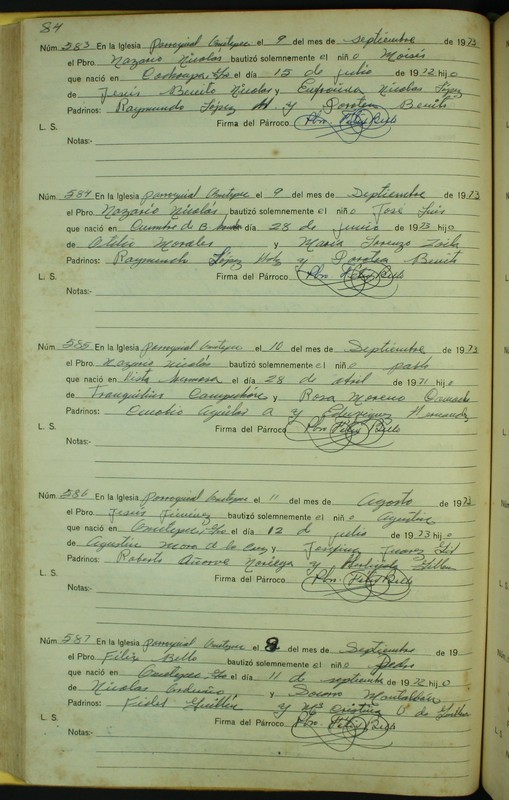 84
Núm. 583 En la Iglesia parroquial Ometepec el 9 del mes de septiembre de 1973
el Pbro. Nazario Nicolás bautizó solemnemente el niño Moisés
que nació en Cochoapa, Gro el día 15 de julio de 1972 hijo
de Jesús Benito Nicolas y Eufrosina Nicolas López
Padrinos: Raymundo López H y Dorotea Benito
L. S. Firma del Párroco Pbro. Félix Bello
Notas:-
Núm 584 En la Iglesia parroquial Ometepec el 9 del mes de Septiembre de 1973
el Pbro. Nazario Nicolás bautizó solemnemente el niño José Luis
que nació en Cumbre de B. el día 28 de junio de 1973 hijo
de Morales y María Lorenzo
Padrinos: Raymundo López y Dorotea Benito
L. S. Firma del Párroco Pbro. Félix Bello
Notas:-
Núm 585 En la Iglesia parroquial Ometepec el 10 del mes de Septiembre de 1973
el Pbro. Nazario Nicolás bautizó solemnemente el niño
que nació en Vista hermosa el día 28 de abril de 1971 hijo
de y Rosa Moreno
Padrinos: Aguilar A y Hernandez
L. S. Firma del Párroco Pbro. Félix Bello
Notas:-
Núm 586 En la Iglesia parroquial Ometepec el 11 del mes de Agosto de 1973
el Pbro. Jesús Jiménez bautizó solemnemente el niño Agustin
que nació en Ometepec, Gro el día 12 de julio de 1973 hijo
de Agustin de la Cruz y Josefina
Padrinos: Roberto Añorve Noriega y
L. S. Firma del Párroco Pbro. Félix Bello
Notas:-
Núm 587 En la Iglesia parroquial Ometepec el 8 del mes de Septiembre de 19
el Pbro. Félix Bello bautizó solemnemente el niño Pedro
que nació en Ometepec, Gro el día 11 de septiembre de 1972 hijo
de Nicolas y Socorro Montalbán
Padrinos: Fidel Guillén y Ma Cristina V. de Guillen
L. S. Firma del Párroco Pbro. Félix Bello
Notas:-